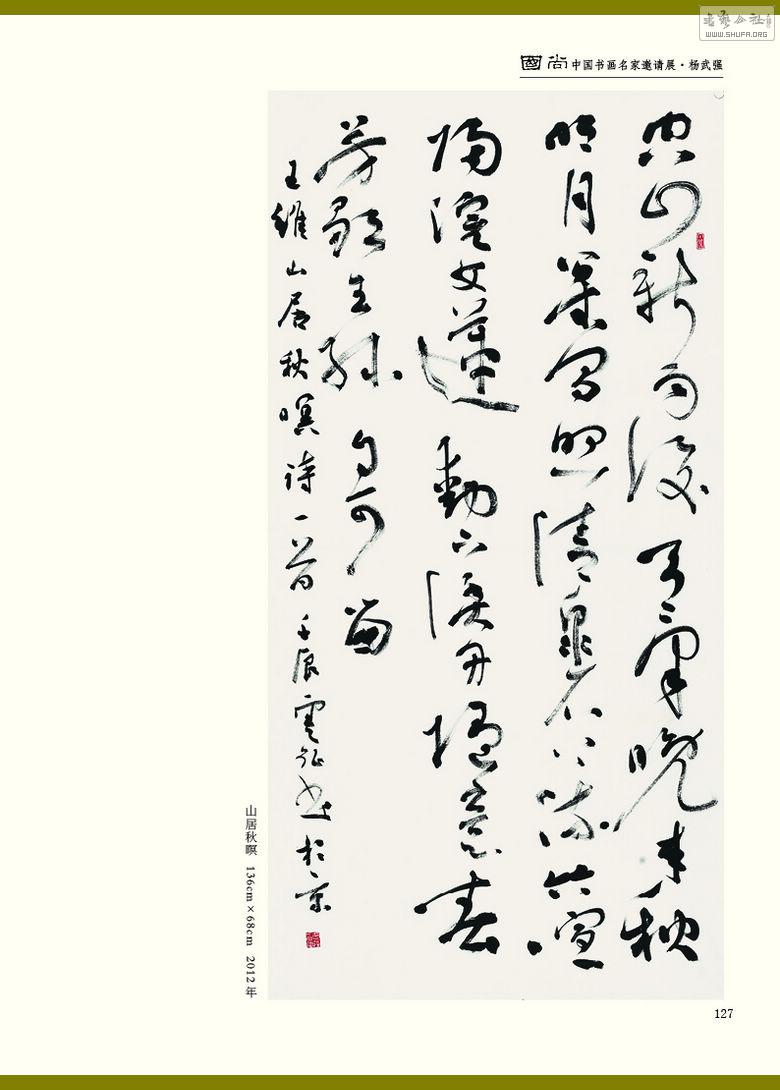 书艺公社
WWW.SHUFA.ORG
國尚 中国书画名家邀请展·杨武强
空山新雨後天氣晚来秋
明月松間照清泉石上流竹喧
歸浣女蓮動下漁舟隨意春
芳歇王孫自可留
王維山居秋暝诗一首 壬辰 书於京
山居秋暝 136cm×68cm 2012年
127